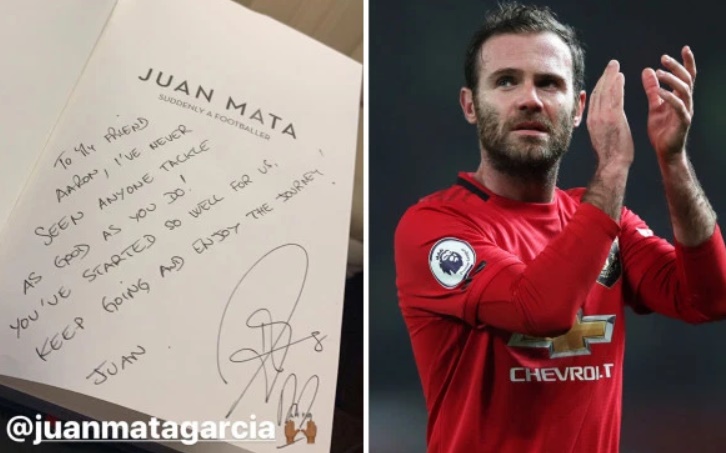 JUAN MATA
SUDDENLY A FOOTBALLER
TO MY FRIEND
AARON, I'VE NEVER
SEEN ANYONE TACKLE
AS GOOD AS YOU DO!
YOU'VE STARTED SO WELL FOR US,
KEEP GOING AND ENJOY THE JOURNEY!
JUAN.
@juanmatagarcia
CHEVROLET